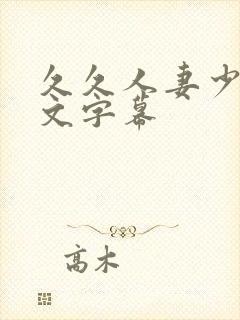 久久人妻少
文字幕
高木